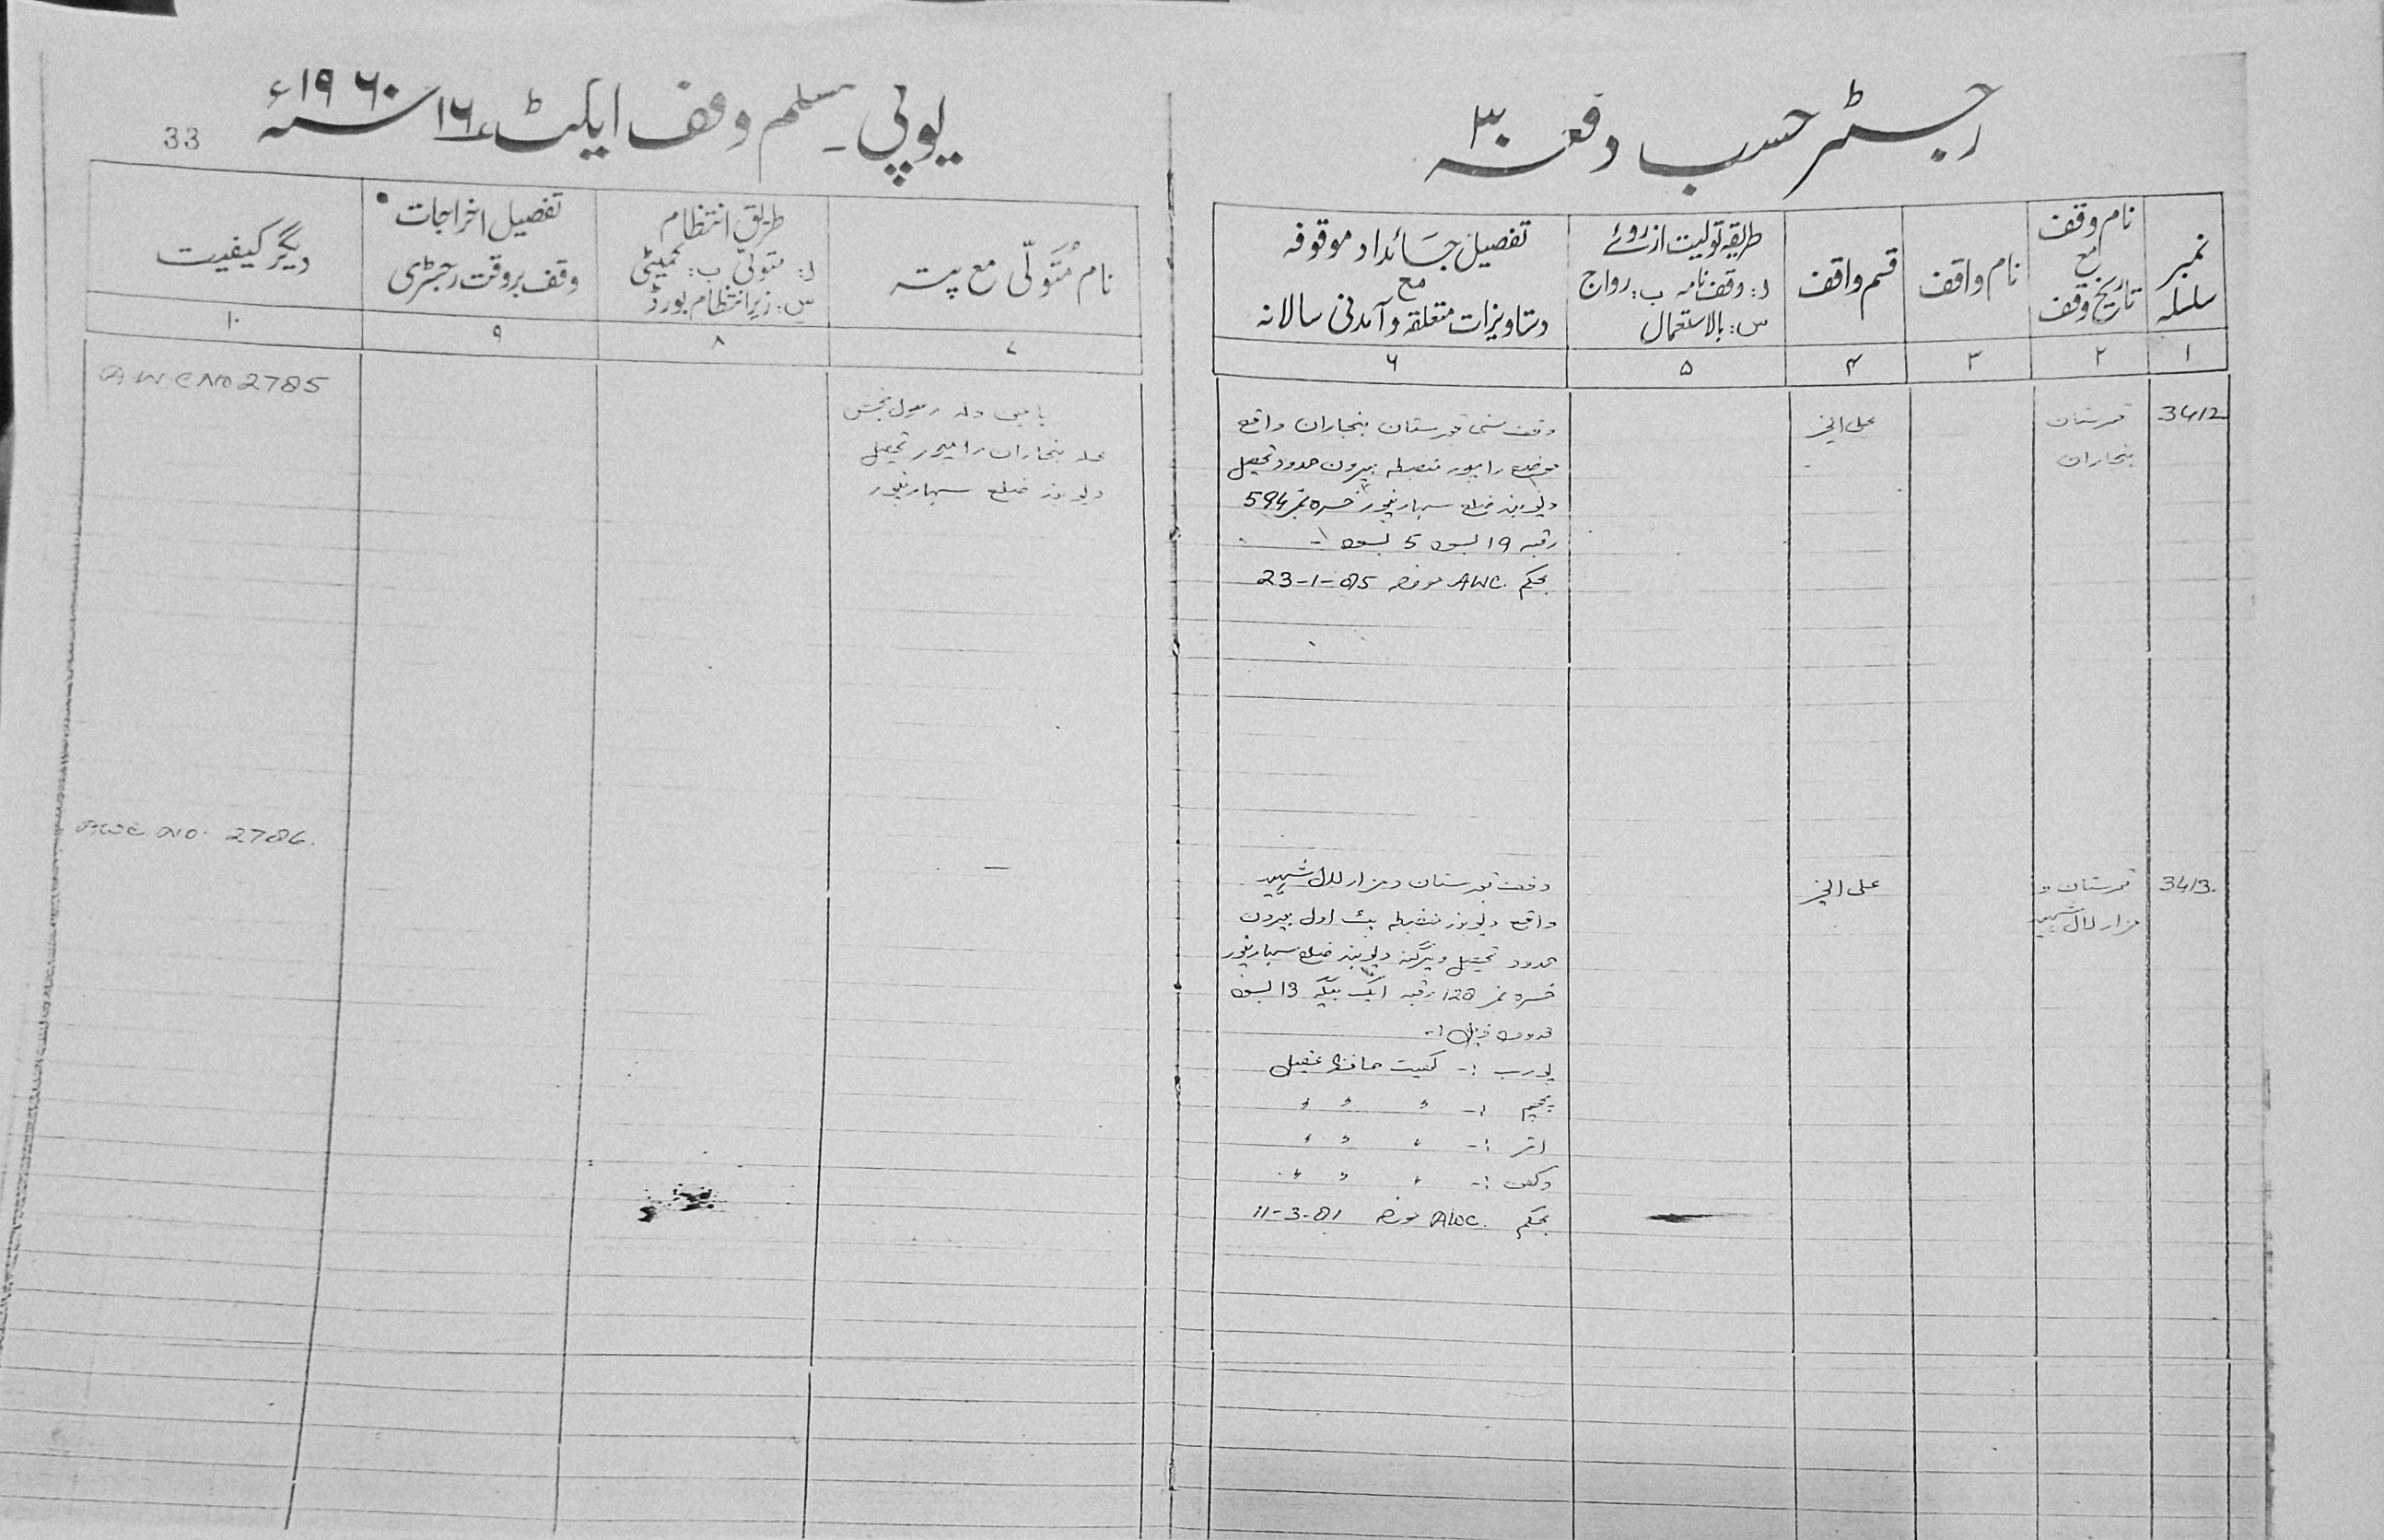 رجسٹر حسب دفعہ ۳۰
یوپی۔ مسلم وقف ایکٹ ۱۶ سنہ ۱۹۶۰ء
33
نمبر سلسلہ
نام وقف مع تاریخ وقف
نام واقف
قسم واقف
طریقہ تولیت از روئے
ا: وقف نامہ ب: رواج
س: بالاستعمال
تفصیل جائداد موقوفہ
مع
دستاویزات متعلقہ و آمدنی سالانہ
نام مُتَولّی مع پتہ
طریق انتظام
ا: متولی ب: کمیٹی
س: زیر انتظام بورڈ
تفصیل اخراجات
وقف بروقت رجسٹری
دیگر کیفیت
۱ ۲ ۳ ۴ ۵ ۶ ۷ ۸ ۹ ۱۰
3412
قبرستان
بنجاران
علی الخیر
وقف سنی قبرستان بنجاران واقع
موضع رامپور منضبطہ بیرون حدود تحصیل
دیوبند ضلع سہارنپور خسرہ نمبر 594
رقبہ 19 بسوہ 5 بسوہ
بحکم AWC. مورخہ 23-1-85
ولد رسول بخش
محلہ بنجاران رامپور تحصیل
دیوبند ضلع سہارنپور
AWC No 2785
3413.
قبرستان و
مزار لال شہید
علی الخیر
وقف قبرستان و مزار لال شہید
واقع دیوبند منضبطہ اول بیرون
حدود تحصیل و پرگنہ دیوبند ضلع سہارنپور
خسرہ نمبر 128 رقبہ ایک بیگہ 13 بسوہ
حدود ذیل :-
پورب :- کھیت حافظ
پچھم :- " " "
اتر :- " " "
دکھن :- " " "
بحکم AWC. مورخہ 11-3-81
—
AWC NO. 2786.